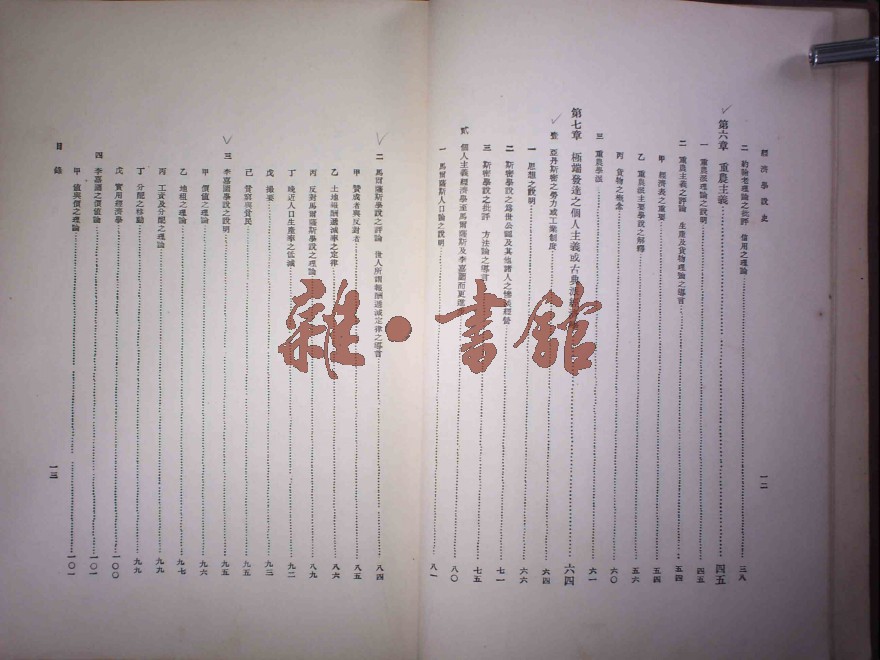 經濟學說史
一二
二 約翰老理論之批評 信用之理論 三八
第六章 重農主義 四五
一 重農派理論之說明 四五
二 重農主義之評論 生產及貨物理論之導言 五四
甲 經濟表之重要 五四
乙 重農派主要學說之解釋 五七
丙 貨物之概念 六〇
三 重農學派 六一
第七章 極端發達之個人主義或古典派 六四
壹 亞丹斯密之勞力或工業制度 六四
一 思想之說明 六五
二 斯密學說之為世公認及其他諸人之慘淡經營 七一
三 斯密學說之批評 方法論之導言 七五
貳 個人主義經濟學至馬爾薩斯及李嘉圖而更進 八〇
一 馬爾薩斯人口論之說明 八一
二 馬爾薩斯學說之評論 世人所謂報酬遞減定律之導言 八四
甲 贊成者與反對者 八五
乙 土地報酬遞減率之定律 八六
丙 反對馬爾薩斯學說之理論 八九
丁 晚近人口生產率之低減 九二
戊 撮要 九三
己 貧窮與貧民 九五
三 李嘉圖學說之說明 九五
甲 價值之理論 九六
乙 地租之理論 九七
丙 工資及分配之理論 九九
丁 分配之移動 九九
戊 實用經濟學 一〇〇
四 李嘉圖之價值論 一〇一
甲 值與價之理論 一〇一
目錄
一三
雜·書館